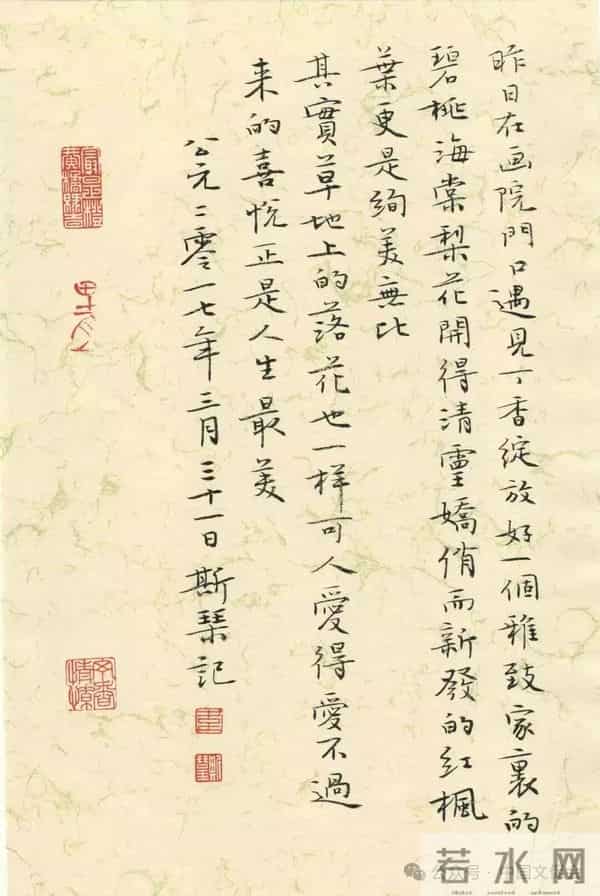 昨日在画院門口遇見丁香綻放好一個雅致家裏的
碧桃海棠梨花開得清靈嬌俏而新發的紅楓
葉更是絢美無比
其實草地上的落花也一樣可人愛得愛不過
来的喜悅正是人生最美
公元二零一七年三月三十一日斯琹記
公众号·中国文
若水网